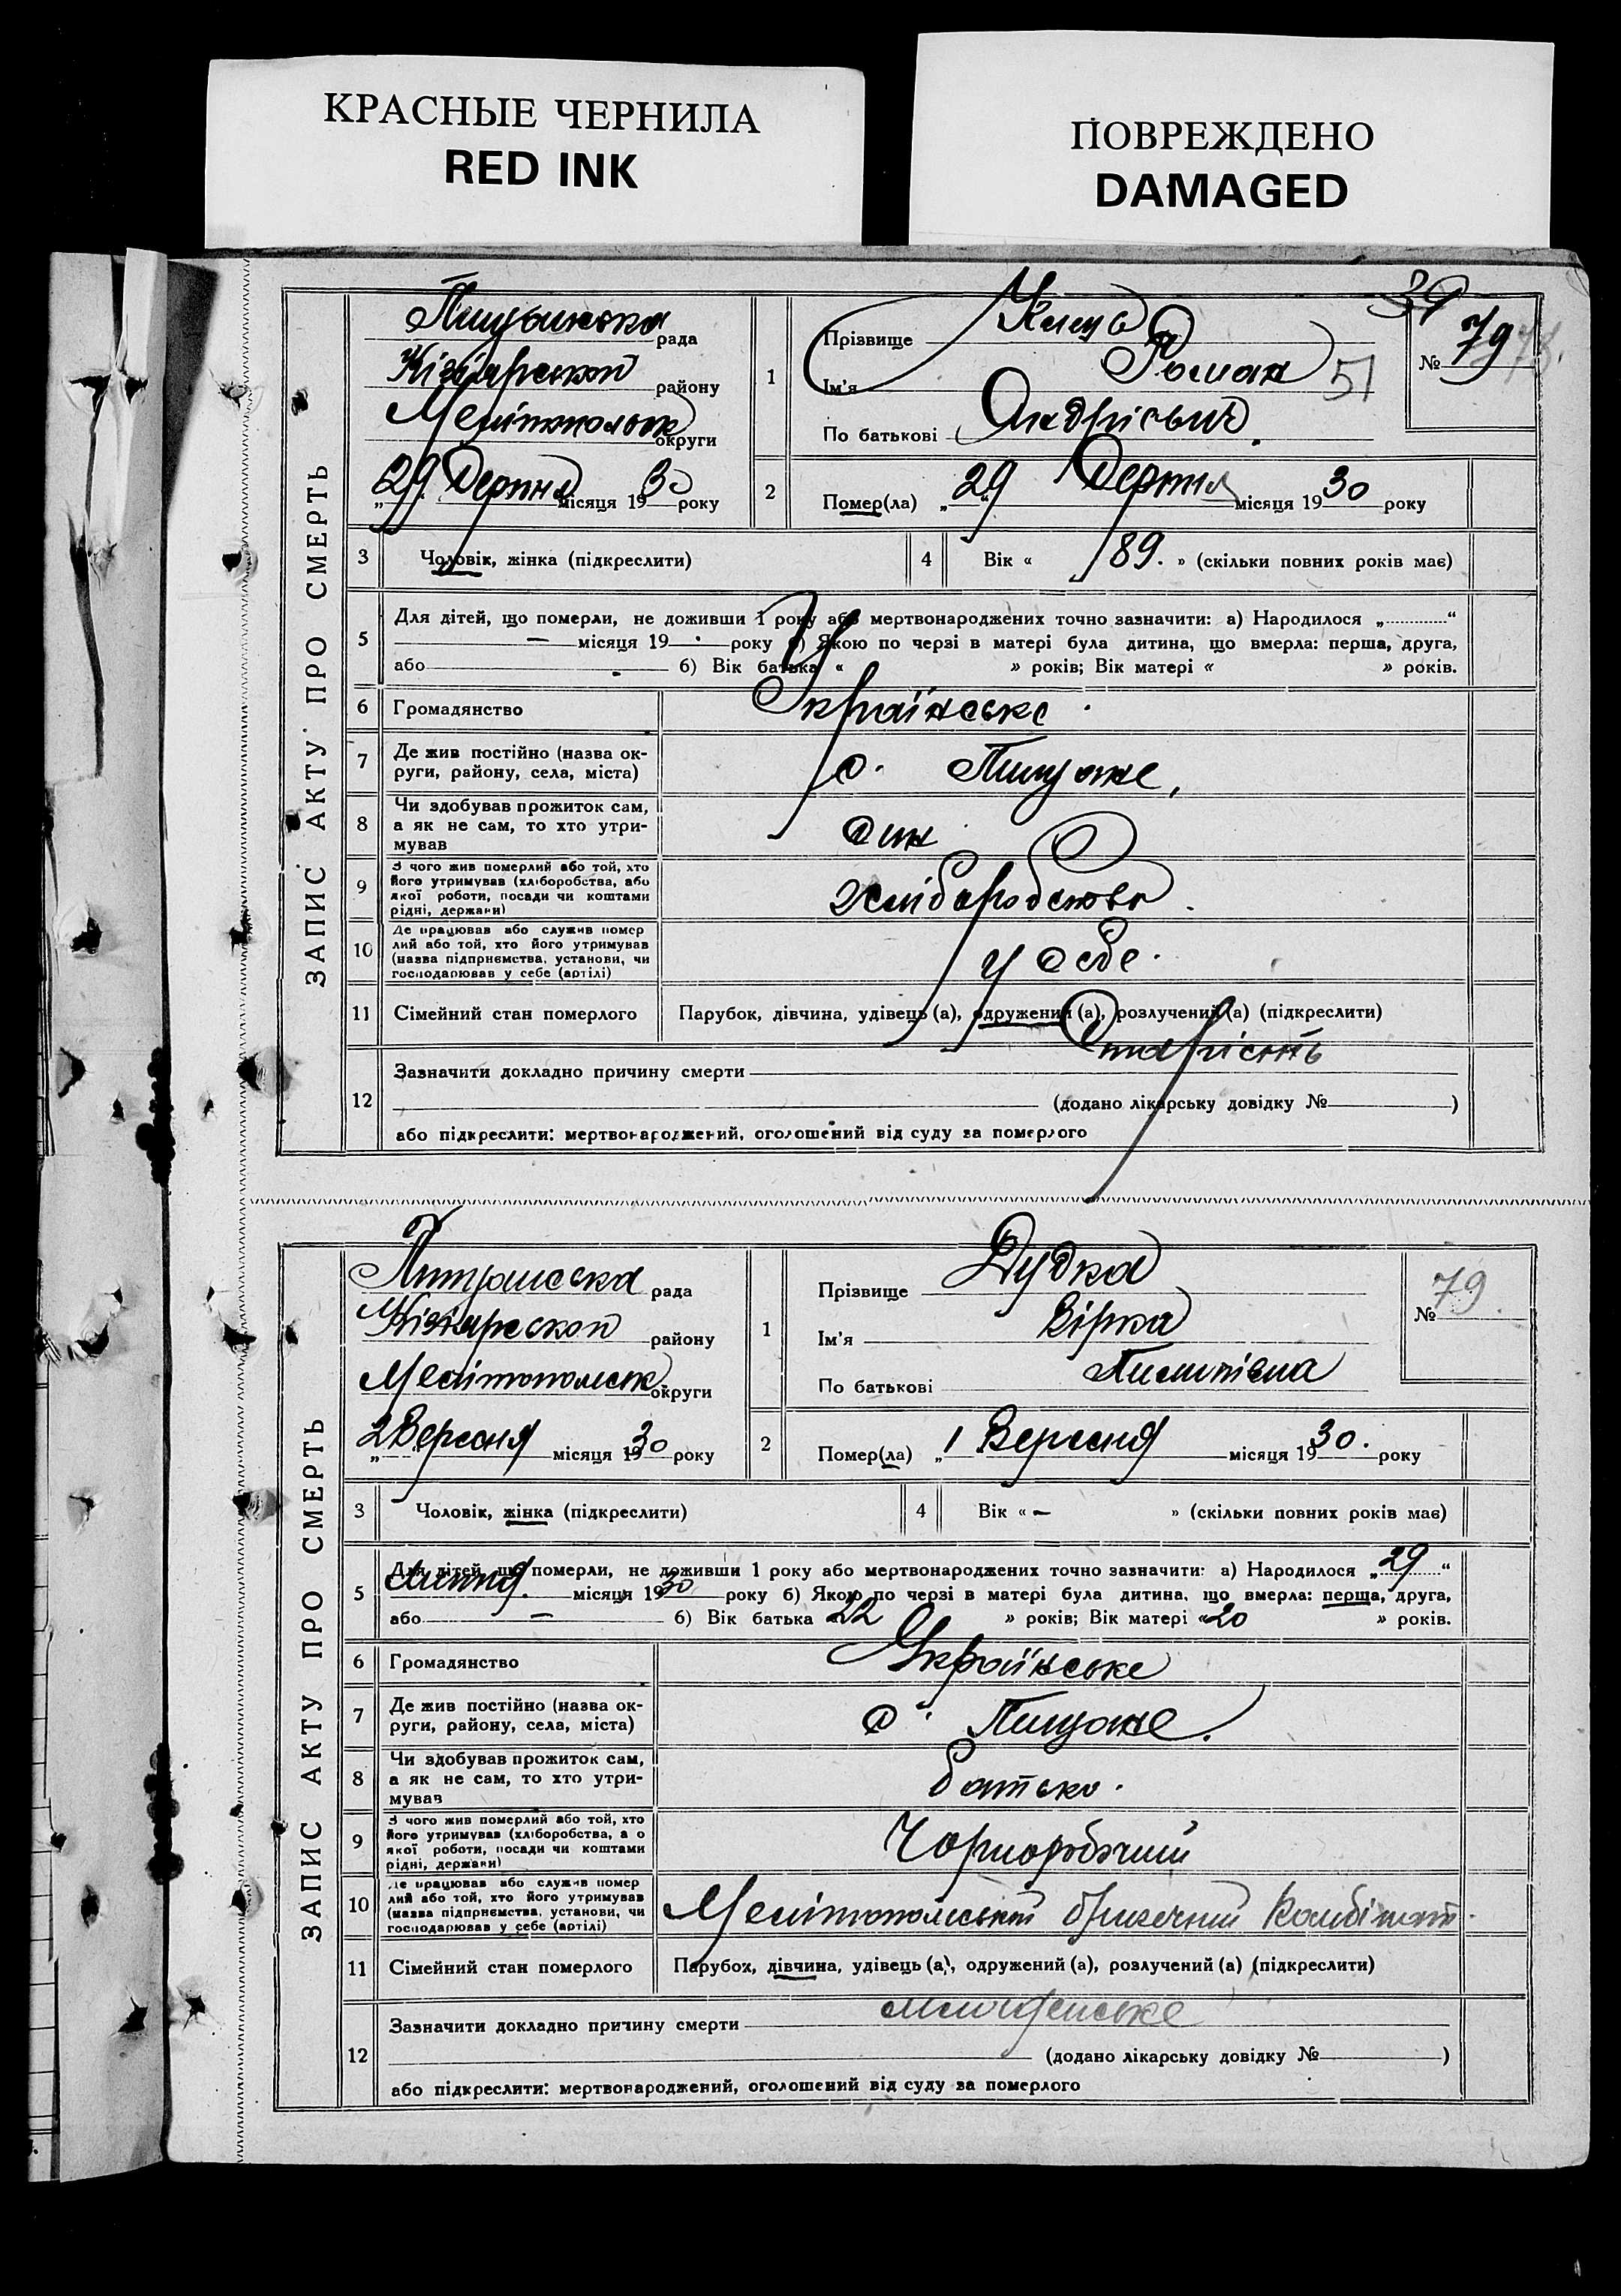 КРАСНЫЕ ЧЕРНИЛА
RED INK
ПОВРЕЖДЕНО
DAMAGED
39
ЗАПИС АКТУ ПРО СМЕРТЬ
рада
району
округи
29 Серпня місяця 1930 року
1
Прізвище
Ім'я Роман 51
По батькові
№ 79
2
Помер(ла) „29“ Серпня місяця 1930 року
3 Чоловік, жінка (підкреслити)
4 Вік « 89. » (скільки повних років має)
5 Для дітей, що померли, не доживши 1 року або мертвонароджених точно зазначити: а) Народилося „ “
— місяця 19 року б) Якою по черзі в матері була дитина, що вмерла: перша, друга,
або б) Вік батька « » років; Вік матері « » років.
6 Громадянство Українське
7 Де жив постійно (назва ок-
руги, району, села, міста) с.
8 Чи здобував прожиток сам,
а як не сам, то хто утри-
мував син
9 З чого жив померлий або той, хто
його утримував (хліборобства, або
якої роботи, посади чи коштами
рідні, держави) хліборобство
10 Де працював або служив помер
лий або той, хто його утримував
(назва підприємства, установи, чи
господарював у себе (артілі) у себе.
11 Сімейний стан померлого Парубок, дівчина, удівець (а), одружений (а), розлучений (а) (підкреслити)
12 Зазначити докладно причину смерти Старість
(додано лікарську довідку № )
або підкреслити: мертвонароджений, оголошений від суду за померлого
ЗАПИС АКТУ ПРО СМЕРТЬ
рада
району
округи
2 Вересня місяця 1930 року
1
Прізвище Дудка
Ім'я Вірка
По батькові
№ 79.
2
Помер(ла) „1 Вересня місяця 1930. року
3 Чоловік, жінка (підкреслити)
4 Вік « — » (скільки повних років має)
5 Для дітей, що померли, не доживши 1 року або мертвонароджених точно зазначити: а) Народилося „29“
липня. місяця 1930 року б) Якою по черзі в матері була дитина, що вмерла: перша, друга,
або — б) Вік батька «22 » років; Вік матері «20 » років.
6 Громадянство Українське
7 Де жив постійно (назва ок-
руги, району, села, міста) с.
8 Чи здобував прожиток сам,
а як не сам, то хто утри-
мував батько.
9 З чого жив померлий або той, хто
його утримував (хліборобства, а о
якої роботи, посади чи коштами
рідні, держави) Чорноробочий
10 Де працював або служив помер
лий або той, хто його утримував
(назва підприємства, установи, чи
господарював у себе (артілі) Комбінат.
11 Сімейний стан померлого Парубок, дівчина, удівець (а), одружений (а), розлучений (а) (підкреслити)
12 Зазначити докладно причину смерти
(додано лікарську довідку № )
або підкреслити: мертвонароджений, оголошений від суду за померлого